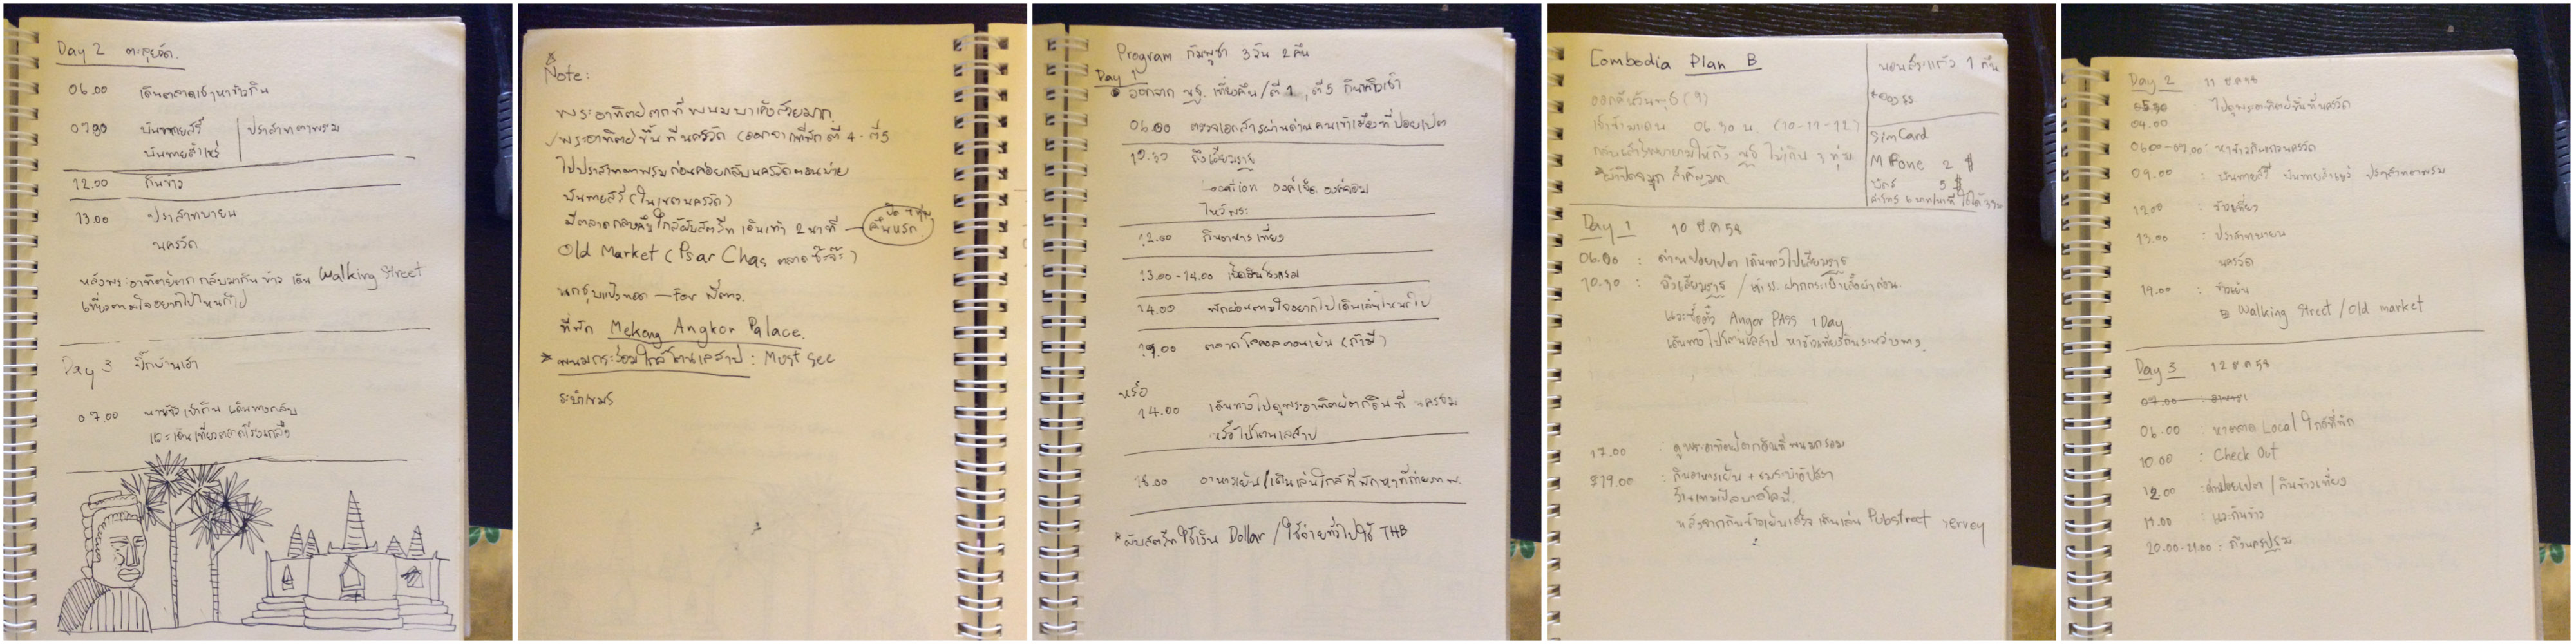 Day 2 ตะลุยวัด.
06.00 เดินตลาดเช้าหาข้าวกิน
0730 บันทายสรี ปราสาทตาพรม
บันทายสำเหร่
12.00 กินข้าว
13.00 ปราสาทบายน
นครวัด
หลังพระอาทิตย์ตก กลับมากินข้าว เดิน Walking Street
เที่ยวตามใจอยากไปไหนก็ไป
Day 3 กลับบ้านเฮา
07.00 หาข้าวเช้ากิน เดินทางกลับ
แวะเดินเที่ยวตลาดโรงเกลือ
Note:
พระอาทิตย์ตกที่พนมบาเค็งสวยมาก
พระอาทิตย์ขึ้นที่นครวัด (ออกจากที่พักตี 4 - ตี 5
ไปปราสาทตาพรมก่อนค่อยกลับนครวัดตอนบ่าย
บันทายสรี (ในเขตนครวัด)
มีตลาดกลางคืนใกล้ผับสตรีท เดินเท้า 2 นาที — คืนแรก
Old Market (Psar Chas ตลาดซ๊ะจ๊ะ)
นกชุบแป้งทอด — for พี่ดาว.
ที่พัก Mekong Angkor Palace.
* พนมกระร่อมใกล้โตนเลสาป : Must see
ระบำเขมร
Program กัมพูชา 3วัน 2คืน
Day 1
ออกจาก นฐ. เที่ยงคืน / ตี 1, ตี 5 กินข้าวเช้า
06.00 ตรวจเอกสารผ่านด่านคนเข้าเมืองที่ปอยเปต
10.30 ถึงเสียมราฐ
location องค์เจ็ก องค์จอม
ไหว้พระ
12.00 กินอาหารเที่ยง
13.00-14.00 เช็คอินโรงแรม
14.00 พักผ่อนตามใจอยากไปเดินเล่นไหนก็ไป
19.00 ตลาดโลคอลตอนเย็น (ถ้ามี)
หรือ
14.00 เดินทางไปดูพระอาทิตย์ตกดินที่ นครธม
หรือไปโตนเลสาป
18.00 อาหารเย็น / เดินเล่นใกล้ที่พักหาที่ถ่ายภาพ.
* ผับสตรีทใช้เงิน Dollar / ใช้จ่ายทั่วไปใช้ THB
Combodia Plan B
นอนสระแก้ว 1 คืน
* จอง รร
ออกคืนวันพุธ (9)
เช้าข้ามแดน 06.30 น. (10-11-12)
กลับเสาร์พยายามให้ถึง นฐ ไม่เกิน 3 ทุ่ม
* ผ้าปิดจมูก สำคัญมาก
Sim Card
M Fone 2 $
บัตร 5 $
Day 1 10 ธ.ค 58
06.00 : ด่านปอยเปต เดินทางไปเสียมราฐ
10.30 : ถึงเสียมราฐ / เข้า รร. ฝากกระเป๋าเสื้อผ้าก่อน.
แวะซื้อตั๋ว Angor PASS 1 Day
เดินทางไปโตนเลสาป หาข้าวเที่ยงกินระหว่างทาง
17.00 : ดูพระอาทิตย์ตกดินที่พนมกรอม
19.00 : กินอาหารเย็น + ชมระบำอัปสรา
หลังจากกินข้าวเย็นเสร็จ เดินเล่น Pubstreet servey
Day 2 11 ธ ค 58
05.30 : ไปดูพระอาทิตย์ขึ้นที่นครวัด
04.00
06.00-09.00 : หาข้าวกินแถวนครวัด
09.00 : บันทายสรี บันทายสำเหร่ ปราสาทตาพรม
12.00 : ข้าวเที่ยง
13.00 : ปราสาทบายน
นครวัด
19.00 : ข้าวเย็น
Walking Street / Old market
Day 3 12 ธ ค 58
07.00 : อาหาร
06.00 : หาตลาด Local ใกล้ที่พัก
10.00 : Check Out
12.00 : ด่านปอยเปต / กินข้าวเที่ยง
17.00 : แวะกินข้าว
20.00-21.00 : ถึงนครปฐม